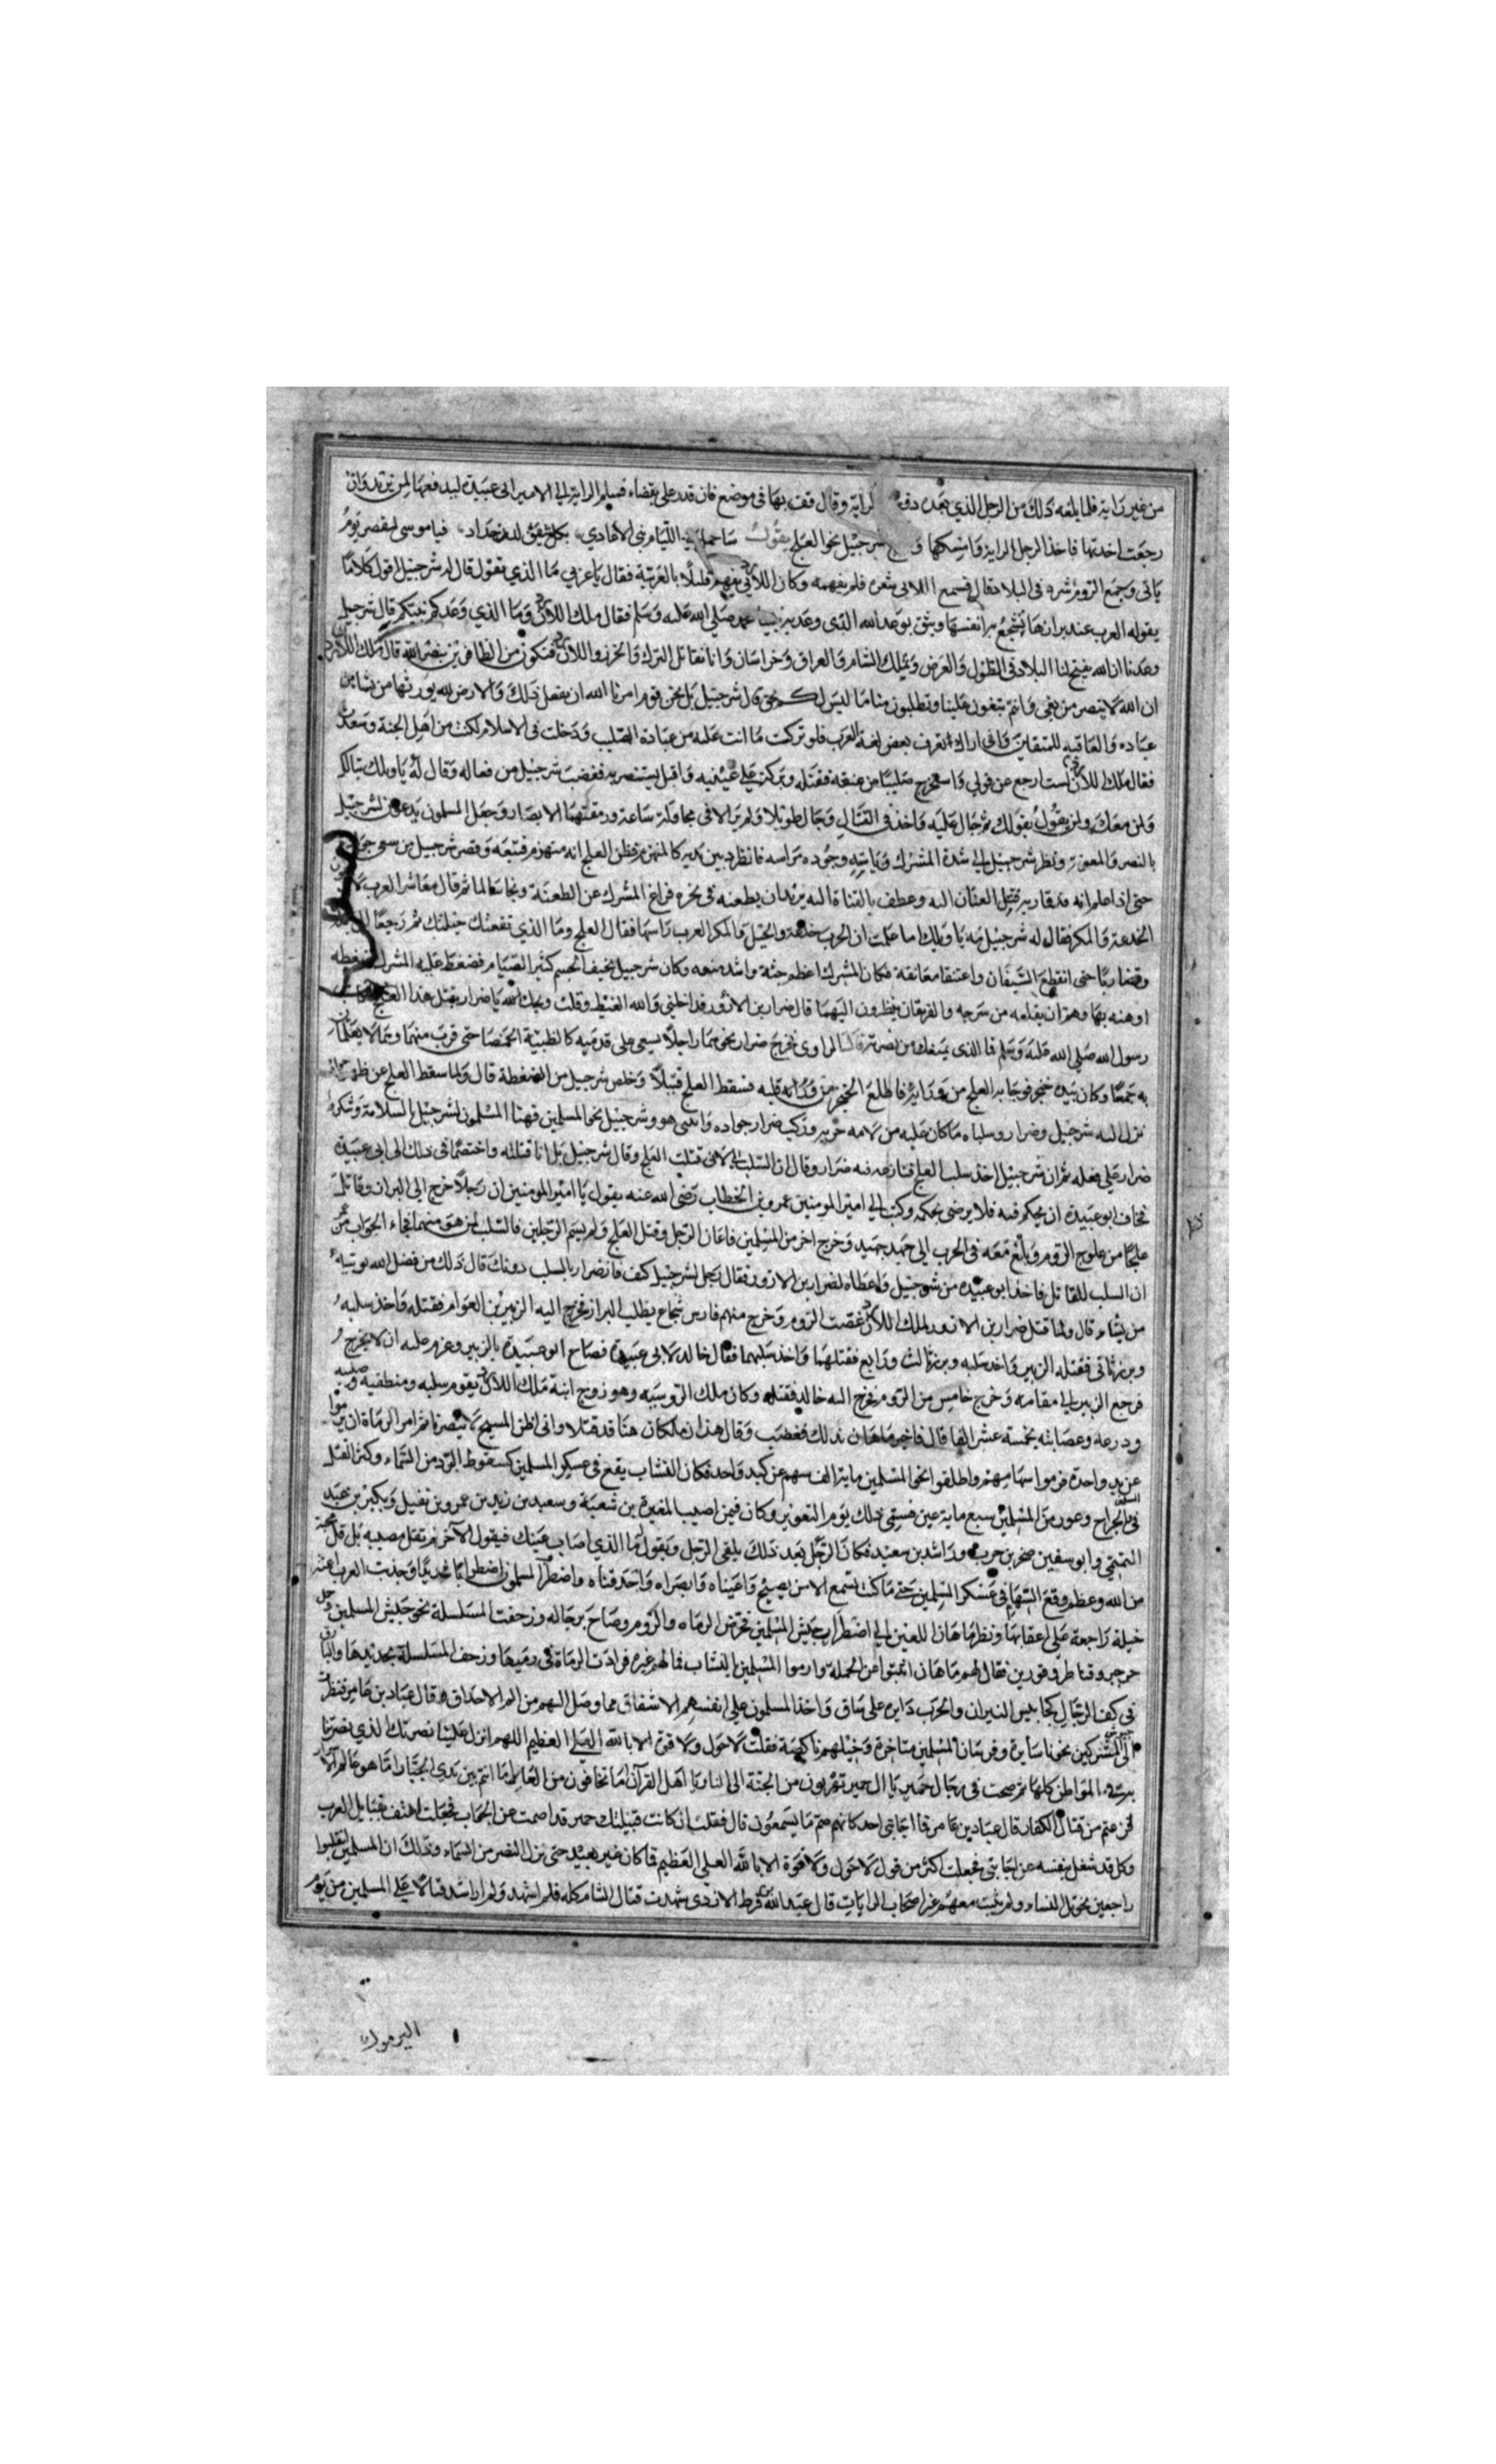 من غير راية فلما بلغه ذلك من الرجل الذي نجده دفع الراية وقال قف بها في موضع فان قدر على بقضاء فسلم الراية الي الامير ابي عبيدة ليدفعها لمن يريد وان
رجعت اخذتها فاخذ الرجل الراية وامسكها شرحبيل نحو العلج يقول ساحمل اللئام بني الاعادي بكل
ياتي وجميع الروم شرد في البلاد قال فسمع اللاني شعره فلم يفهمه وكان اللاني يفهم قليلا بالعربية فقال يا عربي ما الذي تقول قال له شرحبيل اقول كلاما
يقوله العرب عند برازها تشجع به انفسها ويثق بوعد الله الذي وعد به نبينا محمد صلي الله عليه وسلم فقال ملك اللان وما الذي وعدكم نبيكم قال شرحبيل
وعدنا ان الله يفتح لنا البلاد في الطول والعرض ونملك الشام والعراق وخراسان وانا نقاتل الترك والخزر واللان فنكون من الظافرين بنصر الله قال ملك اللان
ان الله لا ينصر من بغي وانتم تبغون علينا وتطلبون منا ما ليس لكم بحق قال شرحبيل بل نحن قوم امرنا الله ان نفعل ذلك والارض لله يورثها من يشا من
عباده والعاقبه للمتقين واني اراك تعرف بعض لغة العرب فلو تركت ما انت عليه من عبادة الصليب ودخلت في الاسلام لكنت من اهل الجنة
فقال ملك اللان لست ارجع عن قولي واستخرج صليبا من عنقه فقبله وتركه علي عينيه واقبل يستنصر به فغضب شرحبيل من فعاله وقال له يا ويلك تبا لك
ولمن معك ولمن يقول بقولك ثم جال عليه واخذ في القتال وجال طويلا ولم يزالا في مجاولة ساعة ورمقتهما الابصار وجعل المسلمون يدعون لشرحبيل
بالنصر والمعونه ونظر شرحبيل الي شدة المشرك فانطرد بين يديه كالمنهزم فظن العلج انه منهزم فتبعه وقصر شرحبيل من سعي جواده
حتي اذا علم انه قد قاربه العنان اليه وعطف بالقناة اليه يريد ان يطعنه في نحره فراغ المشرك عن الطعنة ونجا سالما ثم قال معاشر العرب لا
الخدعة والمكر فقال له شرحبيل يا ويلك اما علمت ان الحرب خدعة والحيل والمكر العرب راسها فقال العلج وما الذي نفعتك حيلتك ثم رجعا
وتضاربا حتى انقطع السيفان واعتنقا معانقة فكان المشرك اعظم جثة واشد منعه وكان شرحبيل نحيف الجسم كثير الصيام فضغط عليه المشرك ضغطه
اوهنه بها وهم ان يقلعه من سرجه والفريقان ينظرون اليهما قال ضرار بن الازور فداخلني والله الغيظ وقلت ويحك يا ضرار يقتل هذا العلج
رسول الله صلي الله عليه وسلم فما الذي يمنعك من نصرته قال الراوي فخرج ضرار نحوهما راجلا يسعي على قدميه كالظبية الخمصا حتي قرب منهما وهما لا يعلمان
به جميعا وكان بيده خنجر فوجا به العلج من ورايه فاطلع الخنجر من قلبه فسقط العلج قتيلا وخلص شرحبيل من الضغطة قال ولما سقط العلج عن ظهر
نزل اليه شرحبيل وضرار وسلباه ما كان عليه من لامه حربه وركب ضرار جواده وانثنى هو وشرحبيل نحو المسلمين فهنا المسلمون لشرحبيل بالسلامة وشكروا
ضرار علي فعله ثم ان شرحبيل اخذ سلب العلج فنازعه فيه ضرار وقال ان السلب لي لاني قتلت العلج وقال شرحبيل بل انا قتلته واختصما في ذلك الى ابي عبيدة
فخاف ابو عبيدة ان يحكم فيه فلا يرضي بحكمه وكتب الي امير المومنين عمر بن الخطاب رضي الله عنه يقول يا امير المومنين ان رجلا خرج الي البراز وقاتل
علجا من علوج الروم وبلغ معه في الحرب الي جهد جهيد وخرج اخر من المسلمين فاعان الرجل وقتل العلج ولم يسم الرجلين فالسلب لمن هو منهما فجاء الجواب من عمر
ان السلب للقاتل فاخذ ابو عبيده من شرحبيل واعطاه لضرار بن الازور فقال رجل لشرحبيل كيف فاز ضرار بالسلب دونك قال ذلك من فضل الله يوتيه
من يشاء قال ولما قتل ضرار بن الازور لملك اللان غضبت الروم وخرج منهم فارس شجاع يطلب البراز فخرج اليه الزبير بن العوام فقتله واخذ سلبه
وبرز ثاني فقتله الزبير واخذ سلبه وبرز ثالث ورابع فقتلهما واخذ سلبهما فقال خالد لابي عبيدة فصاح ابو عبيدة بالزبير وعزم عليه ان لا يخرج
فرجع الزبير الي مقامه وخرج خامس من الروم فخرج اليه خالد فقتله وكان ملك الروسيه وهو زوج ابنة ملك اللان يقوم سلبه ومنطقته وصليبه
ودرعه وعصابته بخمسة عشر الفا قال فاخبر ماهان بذلك فغضب وقال هذان ملكان منا قد قتلا واني اظن المسيح لا ينصرنا ثم امر الرماة ان يرموا
عن يد واحدة فرموا سهامهم واطلقوا نحو المسلمين ماية الف سهم عن كبد واحد فكان النشاب يقع في عسكر المسلمين كسقوط البرد من السماء وكثر القتل
في الجراح وعور من المسلمين سبع ماية عين فسمي ذلك يوم التعوير وكان فيمن اصيب المغيرة بن شعبة وسعيد بن زيد بن عمرو بن نفيل وبكير بن عبد الله
التميمي وابو سفين صخر بن حرب وراشد بن سعيد فكان الرجل بعد ذلك يلقي الرجل ويقول ما الذي اصاب عينك فيقول الآخر لم تقل مصيبه بل قل محنة
من الله وعظم وقع السهام في عسكر المسلمين حتي ما كنت تسمع الا من يصيح واعيناه وابصراه واحدقتاه واضطرب المسلمون اضطرابا شديدا وجذبت العرب اعنة
خيلة راجعة علي اعقابها ونظر ماهان اللعين الي اضطراب جيش المسلمين فحرض الرماه والروم وصاح برجاله وزحفت المسلسلة نحو جيش المسلمين
جرجير وقناطر وقورين فقال لهم ماهان اثبتوا عن الحملة وارموا المسلمين بالنشاب فما لهم غيره فزادت الرماة في رميها وزحف المسلسلة بحديدها والبارق
في كف الرجال كمقابيس النيران والحرب دايره على ساق واخذ المسلمون علي انفسهم الاشفاق مما وصل اليهم من الم الاحداق قال عباد بن عامر فنظرت
الي المشركين نحونا سايرة وفرسان المسلمين متاخرة وخيلهم ناكصة فقلت لا حول ولا قوة الا بالله العلي العظيم اللهم انزل علينا نصرك الذي نصرتنا
به في المواطن كلها ثم صحت في رجال حمير يا ال حمير تفرون من الجنة الى النار يا اهل القرآن اما تخافون من العار اما انتم بين يدي الجبار اما هو عالم الاسرار
فجزعتم من قتال الكفار قال عباد بن عامر فما اجابني احد كانهم صم ما يسمعون قال فقلت ان كانت قبيلتك حمير قد اصمت عن الجواب فجعلت اهتف بقبايل العرب
وكل قد شغل بنفسه عن اجابتي فجعلت اكثر من قول لا حول ولا قوة الا بالله العلي العظيم فما كان غير بعيد حتي نزل النصر من السماء وذلك ان المسلمين انقلبوا
راجعين نحو تل النساء ولم يثبت معهم غير اصحاب الرايات قال عبد الله بن قرط الازدي شهدت قتال الشام كله فلم اشهد ولم ار اشد قتالا علي المسلمين من يوم
اليرموك